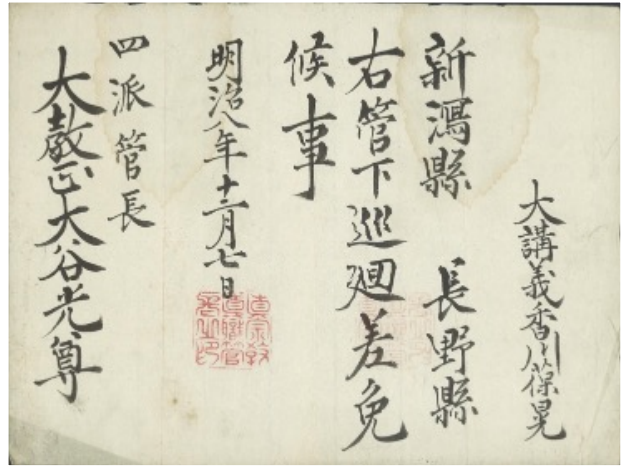 大講義香川葆晃
新潟縣　長野縣
右管下巡廻差免
候事
明治八年十二月七日
真宗教
導職管
長之印
四派管長
大教正大谷光尊